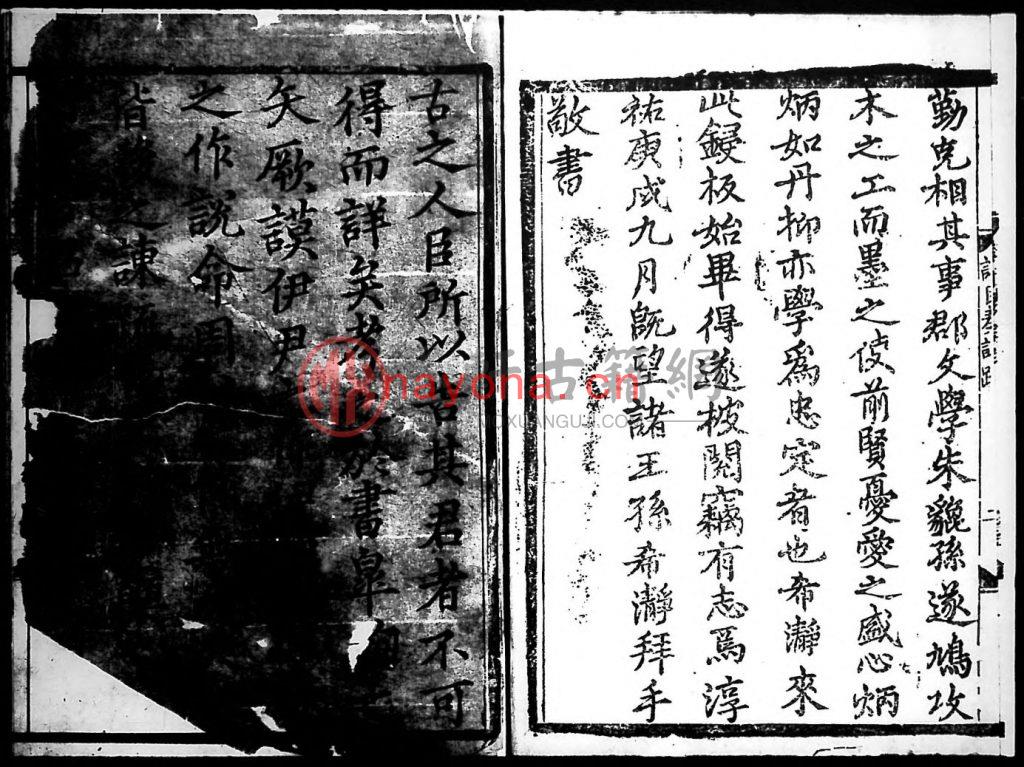 勤克相其事郡文學朱貔孫遂鳩攻
木之工而墨之使前賢憂愛之盛心炳
炳如丹抑亦學為忠定者也希瀞來
此鋟板始畢得遂披閱竊有志焉淳
祐庚戌九月既望諸王孫希瀞拜手
敬書
古之人臣所以告其君者不可
得而詳矣考於書皋
矢厥謨伊尹
之作說命周
之諫
nayona.cn
古籍網